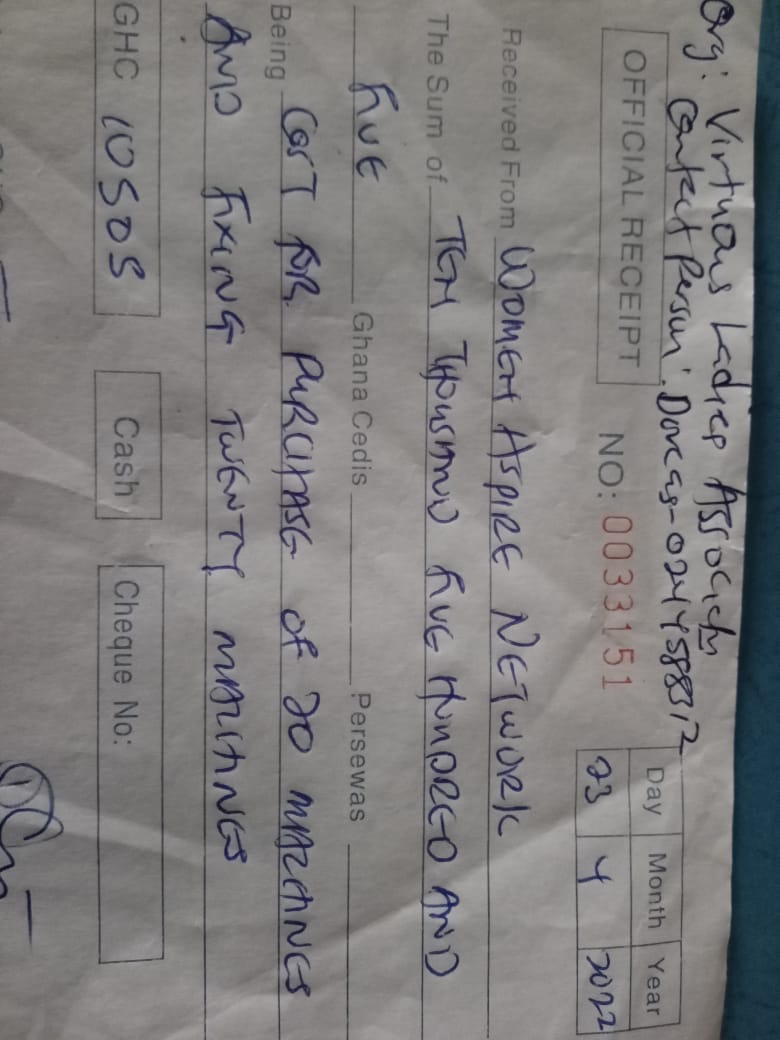 Org: Virtuous Ladies Association
Contact Person: Dorcas-0244588312
OFFICIAL RECEIPT NO: 0033151
Day Month Year
23 4 2022
Received From WOMEN ASPIRE NETWORK
The Sum of TEN THOUSAND FIVE HUNDRED AND
FIVE Ghana Cedis Persewas
Being COST FOR PURCHASE OF 20 MACHINES
AND FIXING TWENTY MACHINES
GHC 10505 Cash Cheque No: